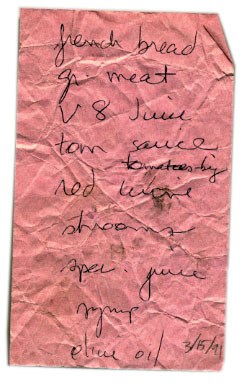 french bread
gr. meat
V8 Juice
tom sauce
tomatoes big
red wine
shrooms
spec. juice
syrup
olive oil
3/15/91